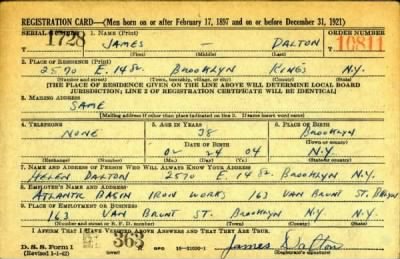 REGISTRATION CARD—(Men born on or after February 17, 1897 and on or before December 31, 1921)
SERIAL NUMBER 1. NAME (Print) ORDER NUMBER
1728 JAMES — DALTON 10811
(First) (Middle) (Last)
2. PLACE OF RESIDENCE (Print)
2570 E. 14 St. BROOKLYN KINGS N.Y.
(Number and street) (Town, township, village, or city) (County) (State)
[THE PLACE OF RESIDENCE GIVEN ON THE LINE ABOVE WILL DETERMINE LOCAL BOARD
JURISDICTION; LINE 2 OF REGISTRATION CERTIFICATE WILL BE IDENTICAL]
3. MAILING ADDRESS
SAME
[Mailing address if other than place indicated on line 2. If same insert word same]
4. TELEPHONE 5. AGE IN YEARS 6. PLACE OF BIRTH
NONE 38 BROOKLYN
DATE OF BIRTH (Town or county)
02 24 04 N.Y.
(Exchange) (Number) (Mo.) (Day) (Yr.) (State or country)
7. NAME AND ADDRESS OF PERSON WHO WILL ALWAYS KNOW YOUR ADDRESS
HELEN DALTON 2570 E. 14 St. BROOKLYN N.Y.
8. EMPLOYER'S NAME AND ADDRESS
ATLANTIC BASIN IRON WORKS 163 VAN BRUNT ST. BKLYN
9. PLACE OF EMPLOYMENT OR BUSINESS
163 VAN BRUNT ST. BROOKLYN N.Y.
(Number and street or R. F. D. number) (Town) (County) (State)
I AFFIRM THAT I HAVE VERIFIED ABOVE ANSWERS AND THAT THEY ARE TRUE.
D. S. S. Form 1 363 GPO James Dalton
(Revised 1-1-42) (Registrant's signature)